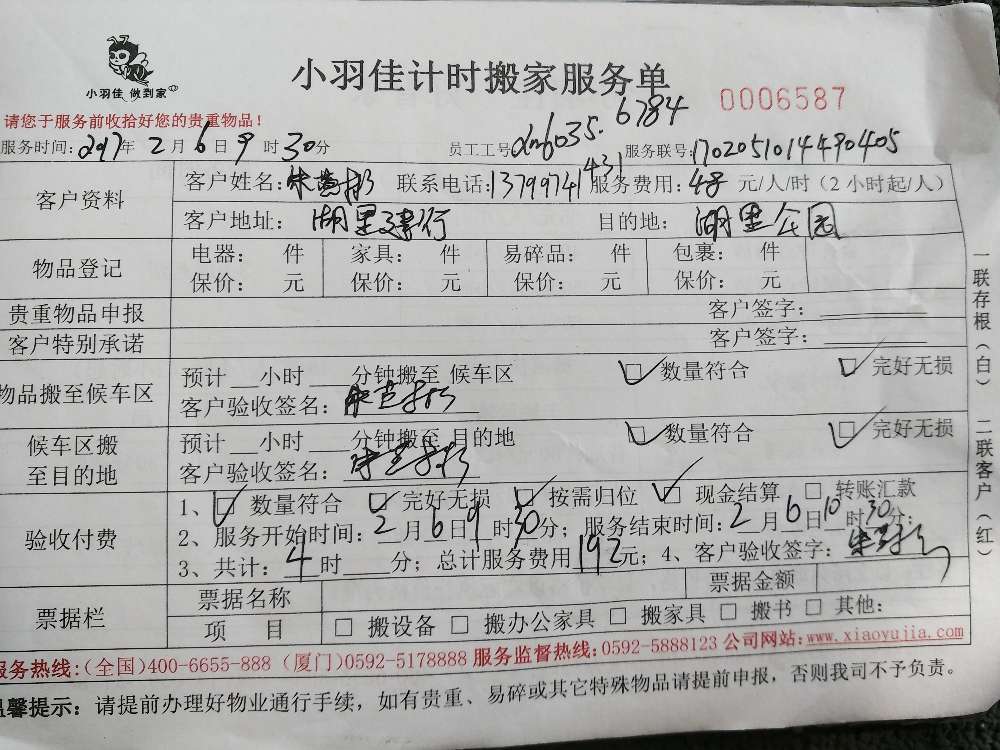 小羽佳 做到家
小羽佳计时搬家服务单
0006587
请您于服务前收拾好您的贵重物品!
服务时间:2017年2月6日9时30分 员工工号:dn6035. 6784 服务联号:1702051014490405
客户资料
客户姓名: 联系电话:13799741431 服务费用:48元/人/时(2小时起/人)
客户地址:湖里建行 目的地:湖里公园
物品登记
电器: 件 家具: 件 易碎品: 件 包裹: 件
保价: 元 保价: 元 保价: 元 保价: 元
贵重物品申报 客户签字:
客户特别承诺 客户签字:
物品搬至候车区
预计__小时___分钟搬至 候车区 ☑数量符合 ☑完好无损
客户验收签名:
候车区搬至目的地
预计__小时___分钟搬至 目的地 ☑数量符合 ☑完好无损
客户验收签名:
验收付费
1、☑数量符合 ☑完好无损 ☑按需归位 ☑现金结算 □转账汇款
2、服务开始时间:2月6日9时30分;服务结束时间:2月6日10时30分;
3、共计:4时___分;总计服务费用192元;4、客户验收签字:
票据栏
票据名称 票据金额
项 目 □搬设备 □搬办公家具 □搬家具 □搬书 □其他:
服务热线:(全国)400-6655-888(厦门)0592-5178888 服务监督热线:0592-5888123 公司网站:www.xiaoyujia.com
温馨提示:请提前办理好物业通行手续,如有贵重、易碎或其它特殊物品请提前申报,否则我司不予负责。
一联存根(白) 二联客户(红)